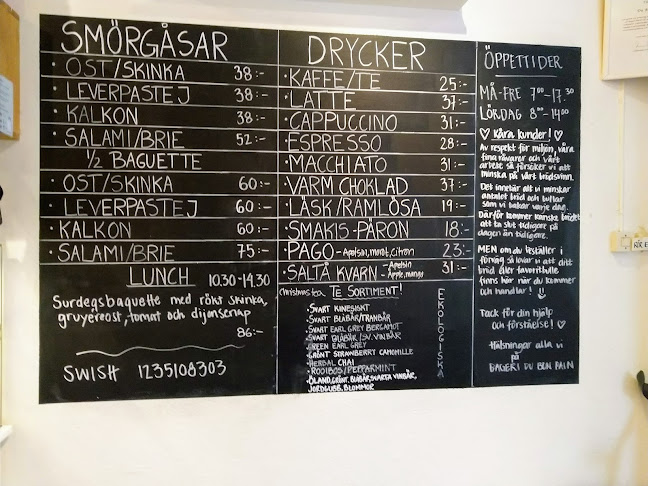 SMÖRGÅSAR
· OST/SKINKA 38:-
· LEVERPASTEJ 38:-
· KALKON 38:-
· SALAMI/BRIE 52:-
½ BAGUETTE
· OST/SKINKA 60:-
· LEVERPASTEJ 60:-
· KALKON 60:-
· SALAMI/BRIE 75:-
LUNCH 10.30-14.30
Surdegsbaquette med rökt skinka,
gruyèreost, tomat och dijonsenap
86:-
SWISH 1235108303
DRYCKER
· KAFFE/TE 25:-
· LATTE 37:-
· CAPPUCCINO 31:-
· ESPRESSO 28:-
· MACCHIATO 31:-
· VARM CHOKLAD 37:-
· LÄSK/RAMLÖSA 19:-
· SMAKIS-PÄRON 18:-
· PAGO - Apelsin, morot, citron 23:-
· SALTÅ KVARN - Apelsin 31:-
Äpple, mango
Christmas tea TE SORTIMENT!
· SVART KINESISKT
· SVART BLÅBÄR/TRANBÄR
· SVART EARL GREY BERGAMOT
· SVART BLÅBÄR/SV. VINBÄR
· GREEN EARL GREY
· GRÖNT STRAWBERRY CAMOMILLE
· HERBAL CHAI
· ROOIBOS/PEPPARMINT
· ÖLAND, GRÖNT, BLÅBÄR, SVARTA VINBÄR,
JORDGUBB, BLOMMOR
EKOLOGISKA
ÖPPETTIDER
MÅ-FRE 7⁰⁰-17.30
LÖRDAG 8⁰⁰-14⁰⁰
♡ Kära kunder! ♡
Av respekt för miljön, våra
fina råvaror och vårt
arbete så försöker vi att
minska på vårt brödsvinn.
Det innebär att vi minskar
antalet bröd och bullar
som vi bakar varje dag.
Därför kommer kanske brödet
att ta slut tidigare på
dagen än tidigare.
MEN om du beställer i
förväg så lovar vi att ditt
bröd eller favoritbulle
finns här när du kommer
och handlar!
Tack för din hjälp
och förståelse! ♡
Hälsningar alla vi
på
BAGERI DU BON PAIN